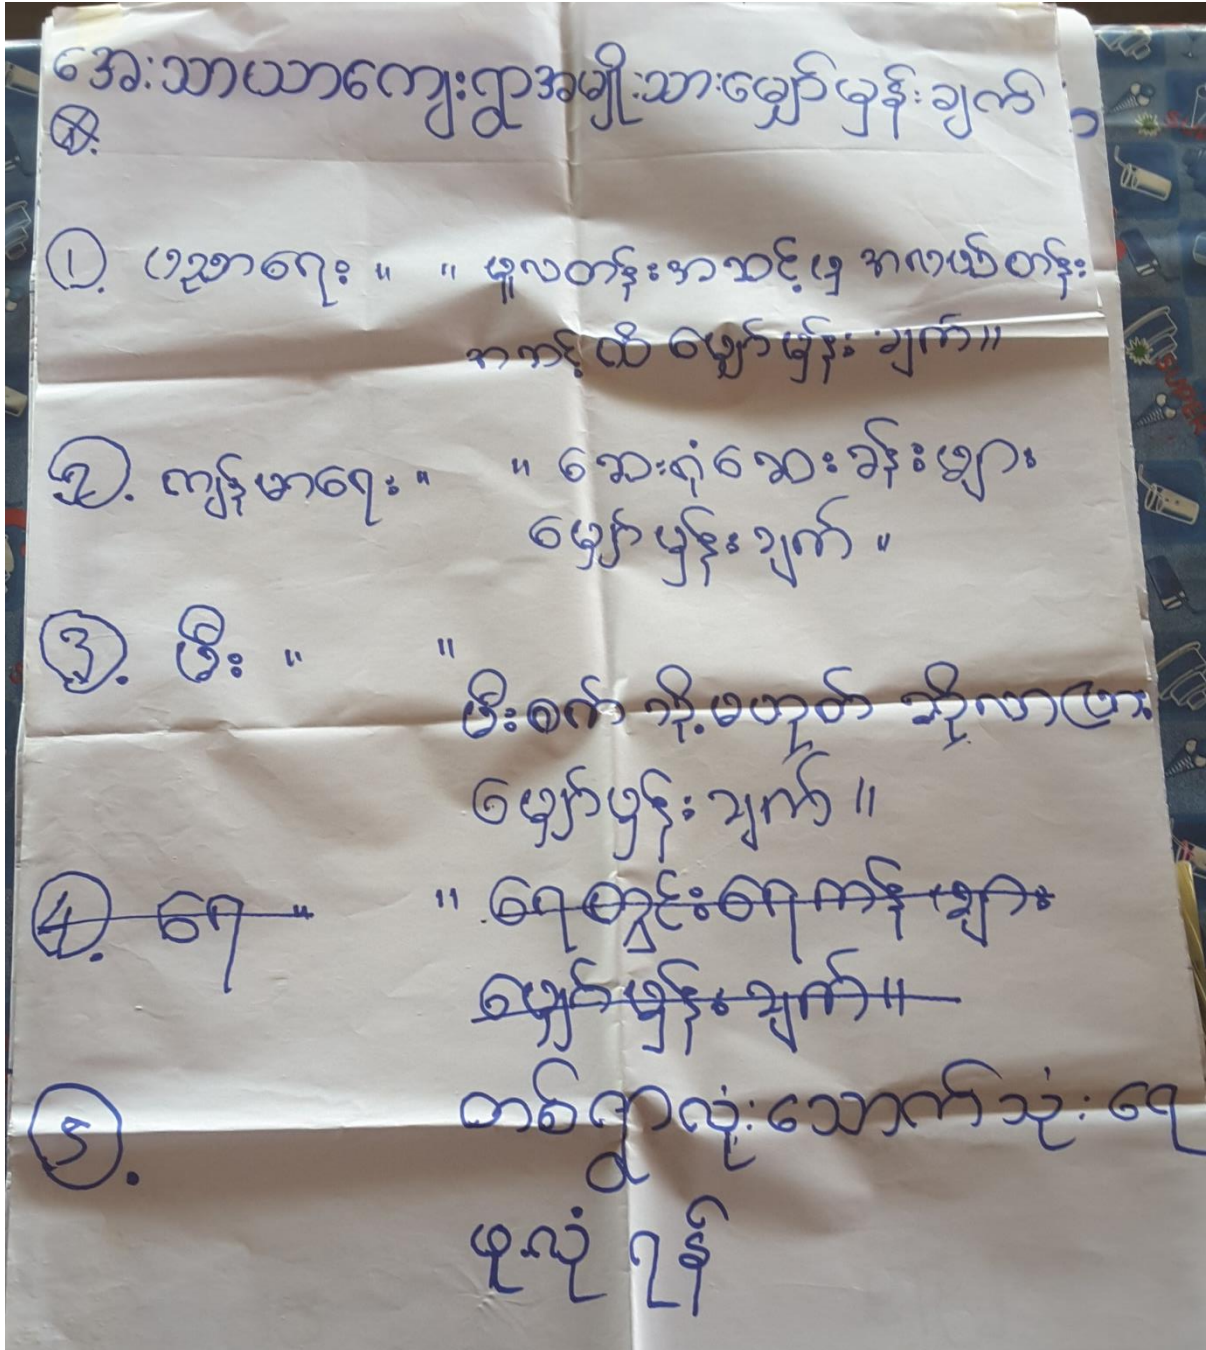 အေးသာယာကျေးရွာအမျိုးသားမျှော်မှန်းချက်
၁။ ပညာရေး။ ။ မူလတန်းအဆင့်မှ အလယ်တန်း
အဆင့်ထိ မျှော်မှန်းချက်။
၂. ကျန်မာရေး။ ။ ဆေးရုံဆေးခန်းများ
မျှော်မှန်းချက်။
၃. မီး။ ။
မီးစက် သို့မဟုတ် ဆိုလာပြား
မျှော်မှန်းချက်။
၄. ရေ။ ။ ရေတွင်းရေကန်များ
မျှော်မှန်းချက်။
၅. တစ်ရွာလုံးသောက်သုံးရေ
ဖူလုံရန်